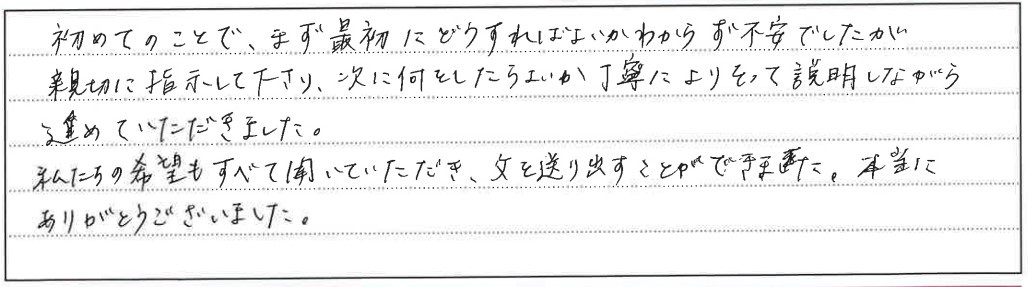 初めてのことで、まず最初にどうすればよいかわからず不安でしたが
親切に指示して下さり、次に何をしたらよいか丁寧によりそって説明しながら
進めていただきました。
私たちの希望もすべて聞いていただき、父を送り出すことができました。本当に
ありがとうございました。